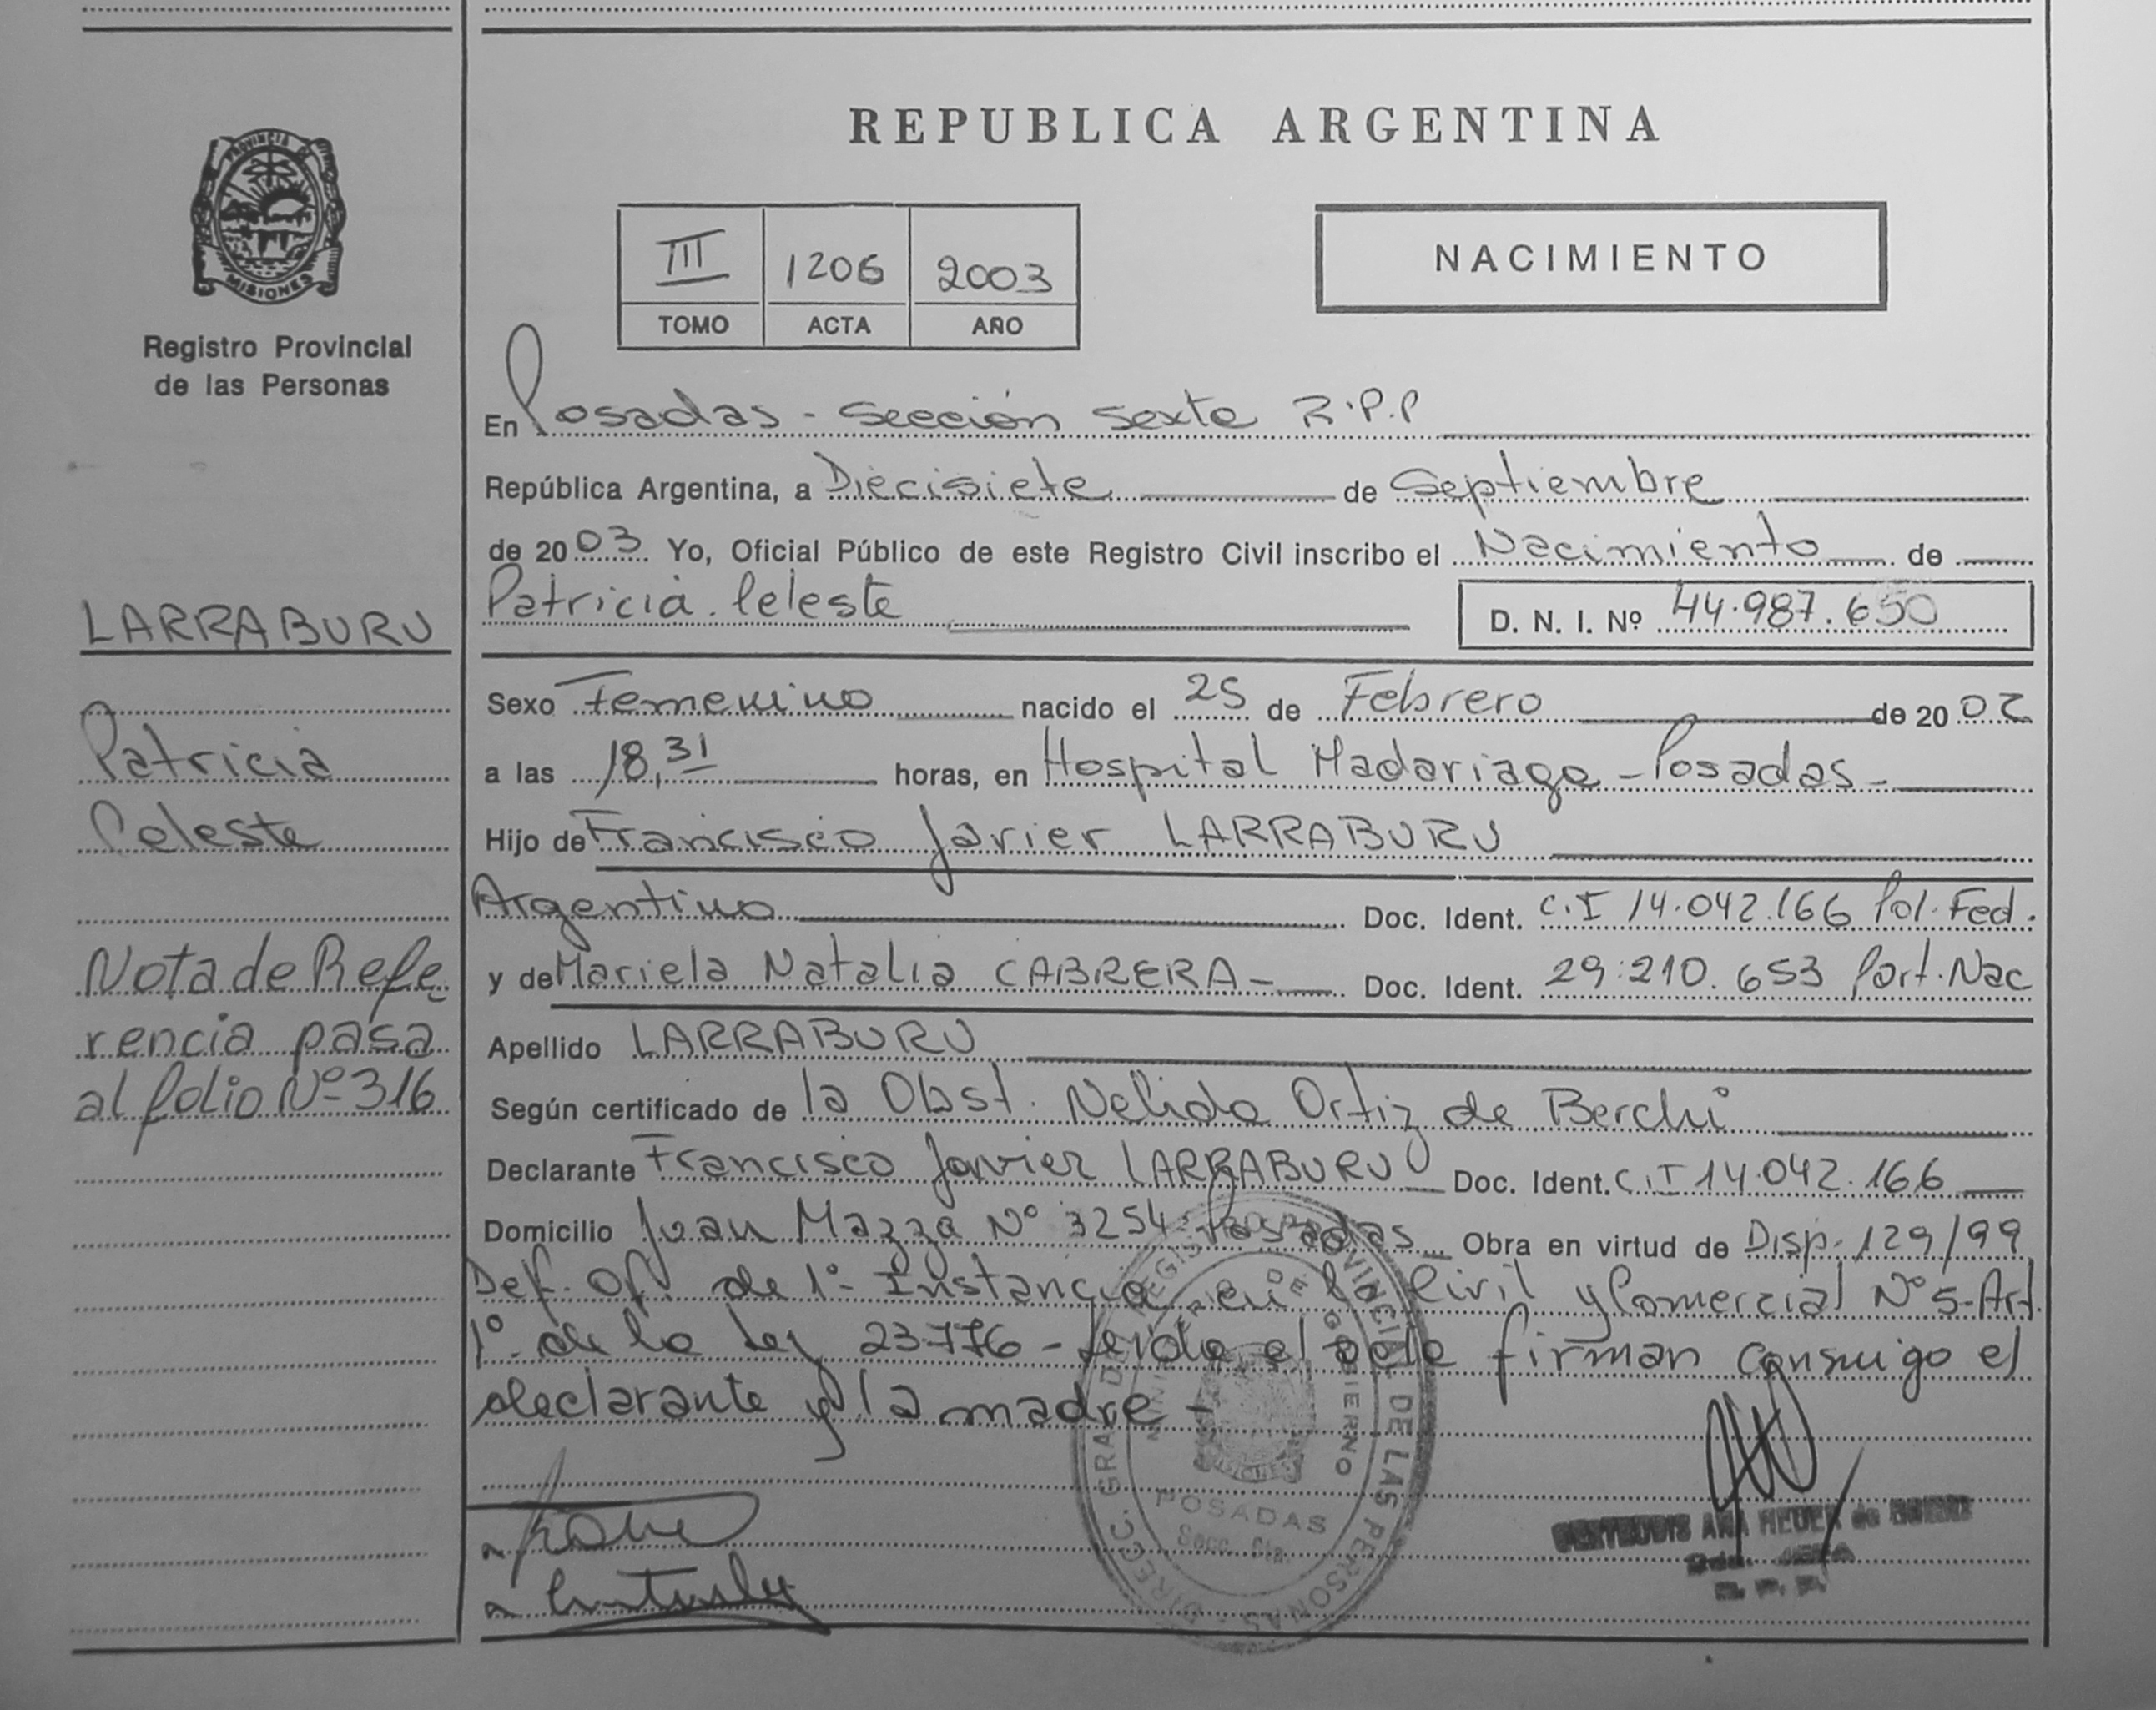 PROVINCIA DE
MISIONES
Registro Provincial
de las Personas
LARRABURU
Patricia
Celeste
Nota de Refe-
rencia pasa
al folio Nº 316
REPUBLICA ARGENTINA
III 1206 2003
TOMO ACTA AÑO
NACIMIENTO
En Posadas - Sección Sexta R.P.P
República Argentina, a Diecisiete de Septiembre
de 2003 Yo, Oficial Público de este Registro Civil inscribo el Nacimiento de
Patricia Celeste D. N. I. Nº 44.987.650
Sexo Femenino nacido el 25 de Febrero de 2002
a las 18,31 horas, en Hospital Madariaga - Posadas -
Hijo de Francisco Javier LARRABURU
Argentino Doc. Ident. C.I 14.042.166 Pol. Fed.
y de Mariela Natalia CABRERA - Doc. Ident. 29.210.653 Part. Nac
Apellido LARRABURU
Según certificado de la Obst. Nelida Ortiz de Berchi
Declarante Francisco Javier LARRABURU Doc. Ident. C.I 14.042.166
Domicilio Juan Mazza Nº 3254 - Posadas Obra en virtud de Disp. 129/99
Def. Of. de 1º Instancia en lo Civil y Comercial Nº 5 - Art.
1º de la Ley 23.776 - Leída el acta firman consmigo el
declarante y la madre -
DIRECC. GRAL DEL REGISTRO PROVINCIAL DE LAS PERSONAS
MINISTERIO DE GOBIERNO
MISIONES
POSADAS
Secc. 6ta.
ANA
R. P. P.